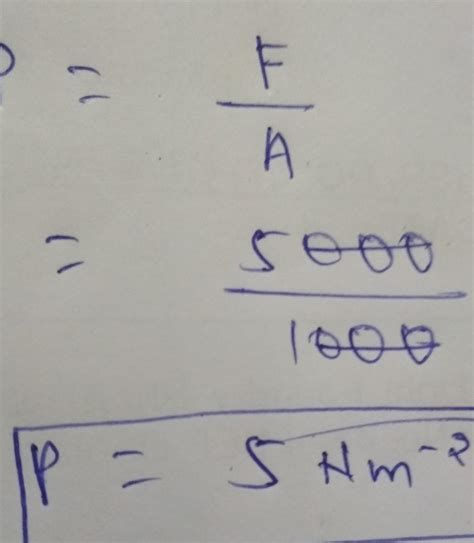 P = F/A
= 5000/1000
P = 5 Nm⁻²